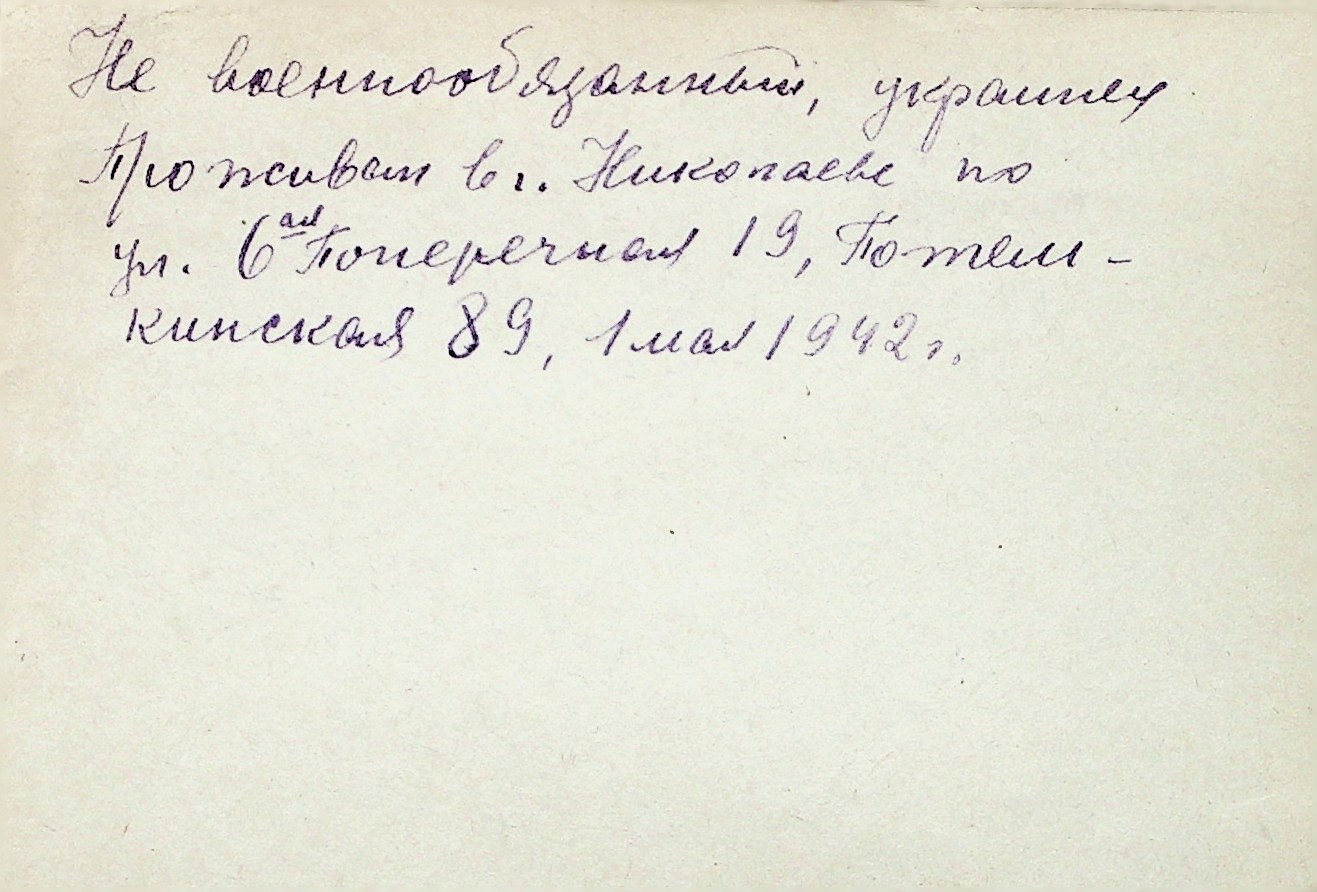 Не военнообязанный, украинец
Проживал в г. Николаеве по
ул. 6ая Поперечная 19, Потем-
кинская 89, 1 мая 1942 г.